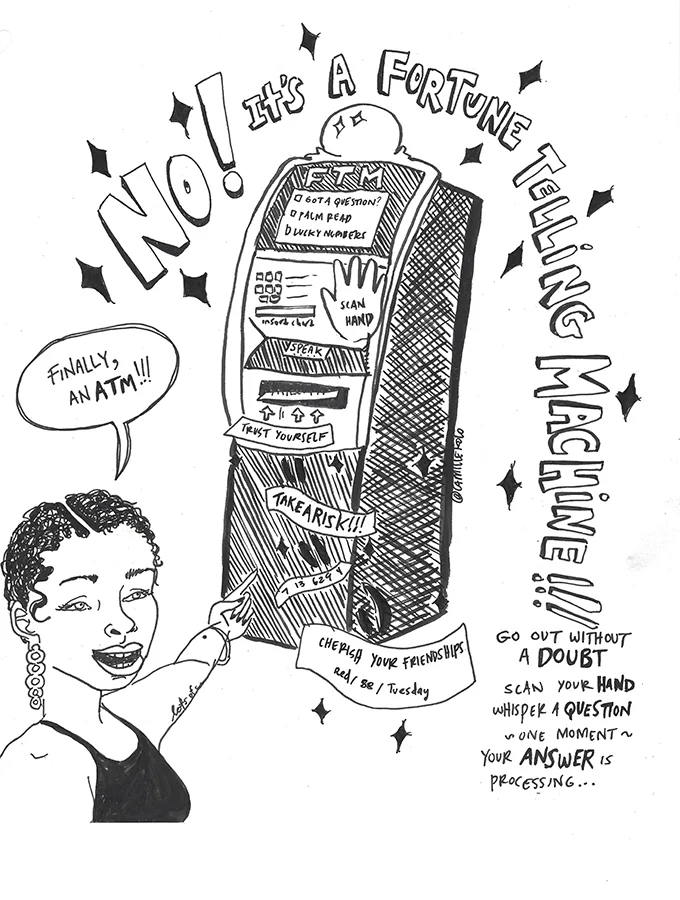 NO! IT'S A FORTUNE TELLING MACHINE!!!
FTM
GOT A QUESTION?
PALM READ
LUCKY NUMBERS
SCAN
HAND
insert card
SPEAK
TRUST YOURSELF
FINALLY,
AN ATM!!!
TAKE A RISK!!!
7 13 629 4
CHERISH YOUR FRIENDSHIPS
Red / 88 / Tuesday
GO OUT WITHOUT
A DOUBT
SCAN YOUR HAND
WHISPER A QUESTION
~ ONE MOMENT ~
YOUR ANSWER IS
PROCESSING...